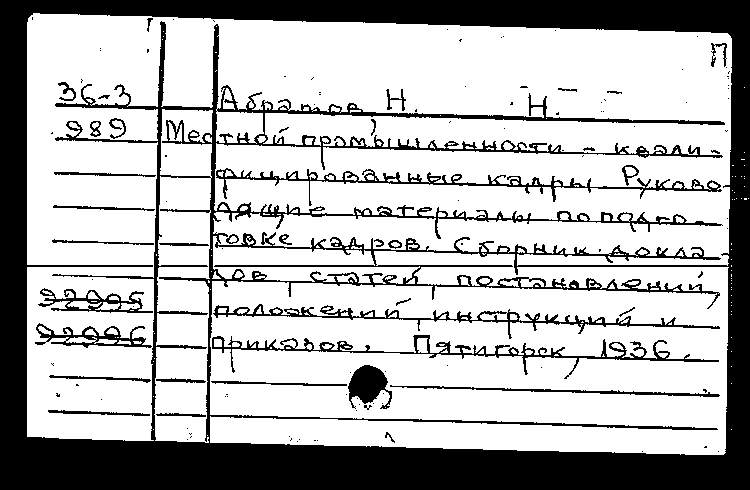 П
36-3 Абратов, Н. Н.
989 Местной промышленности - квали-
фицированные кадры. Руково-
дящие материалы по подго-
товке кадров. Сборник докла-
дов, статей, постановлений,
92995 положений, инструкций и
92996 приказов. Пятигорск, 1936.